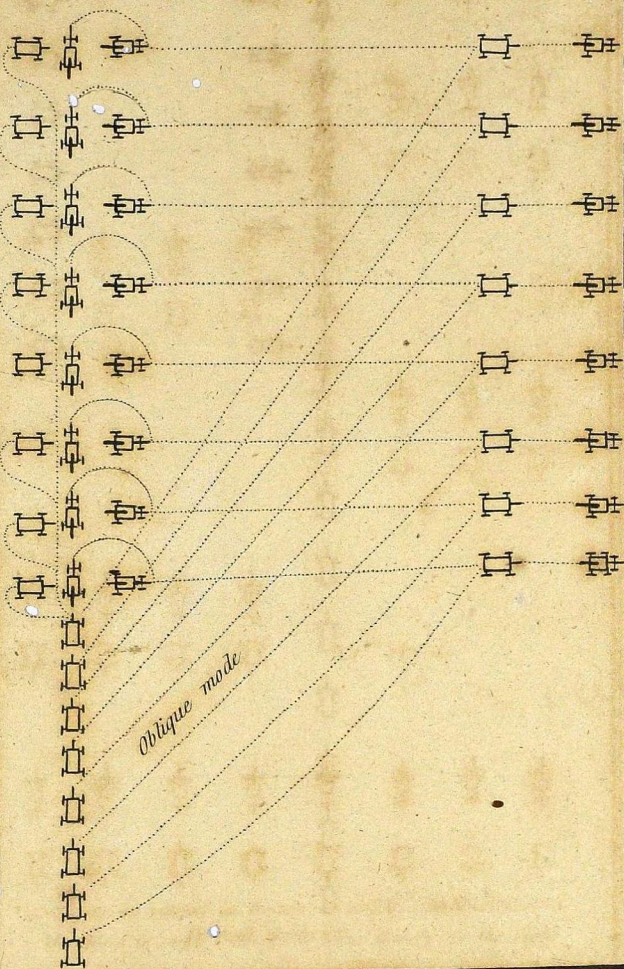 Oblique mode